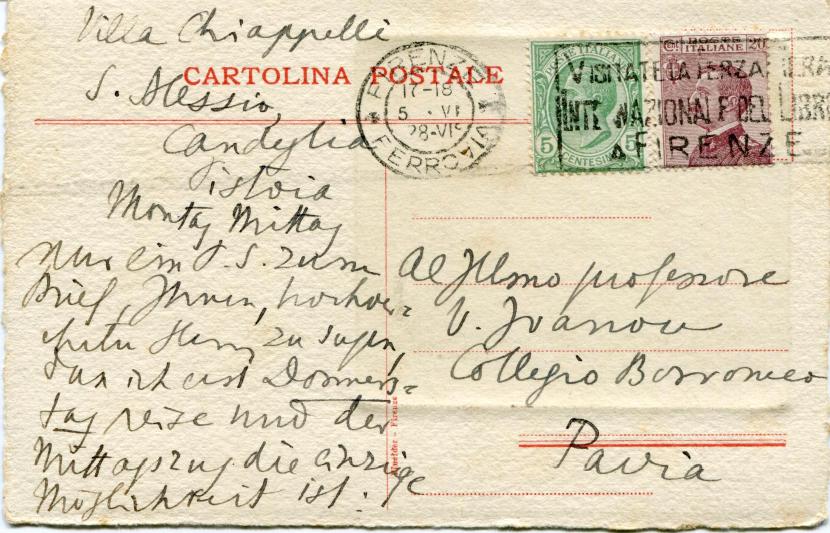 Villa Chiappelli
CARTOLINA POSTALE
S. Alessio,
Candeglia
Pistoia
Montag Mittag
Nur ein P.S. zum
Brief, Ihnen, hochver=
ehrter Herr, zu sagen,
dass ich erst Donners=
tag reise und der
Mittagszug die einzige
Möglichkeit ist.
FIRENZE
17-18
5 · VI
28-VI
FERROVIA
POSTE ITALIANE
5 5
CENTESIMI
POSTE
ITALIANE
20
VISITATE LA TERZA FIERA
INTERNAZIONALE DEL LIBRO
FIRENZE
Al Illmo professore
V. Ivanov
Collegio Borromeo
Pavia
Firenze